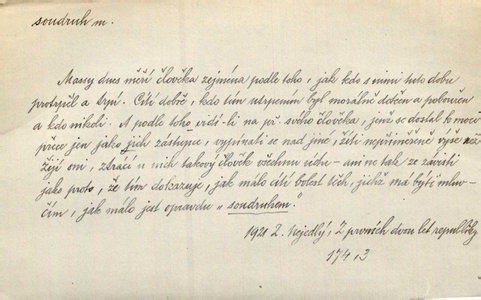 soudruh m.
Massy dnes měří člověka zejména podle toho, jak kdo s nimi tuto dobu
protrpěl a trpí. Cítí dobře, kdo tím utrpením byl morálně dotčen a pobouřen
a kdo nikoli. A podle toho vidí-li na př. svého člověka, jenž se dostal k moci
přece jen jako jich zástupce, vypínati se nad jiné, žíti nepřiměřeně výše než
žijí oni, ztrácí u nich takový člověk všechnu úctu – ani ne tak ze závisti
jako proto, že tím dokazuje, jak málo cítí bolest těch, jichž má býti mluv-
čím, jak málo jest opravdu „soudruhem."
1921 Z. Nejedlý, Z prvních dvou let republiky
174